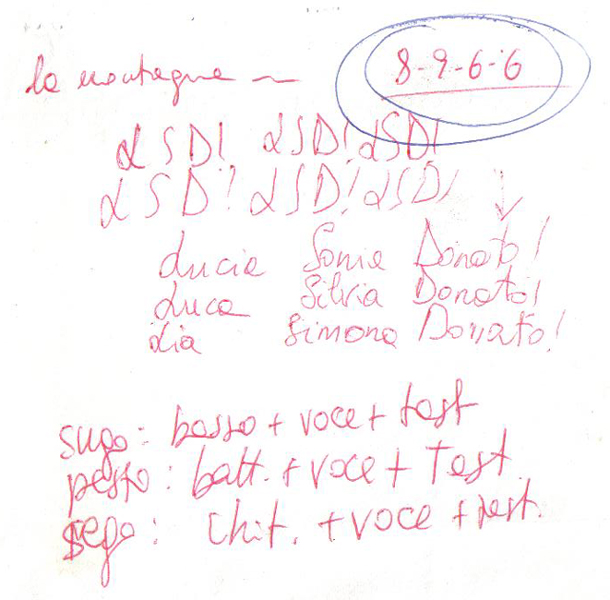 la montagna ~ 8-9-6-6
LSD! LSD! LSD!
LSD! LSD! LSD!
Lucia Sonia Donato!
Luca Silvia Donato!
Lia Simona Donato!
sugo: basso + voce + tast
pesto: batt. + voce + Tast.
sego: chit. + voce + test.